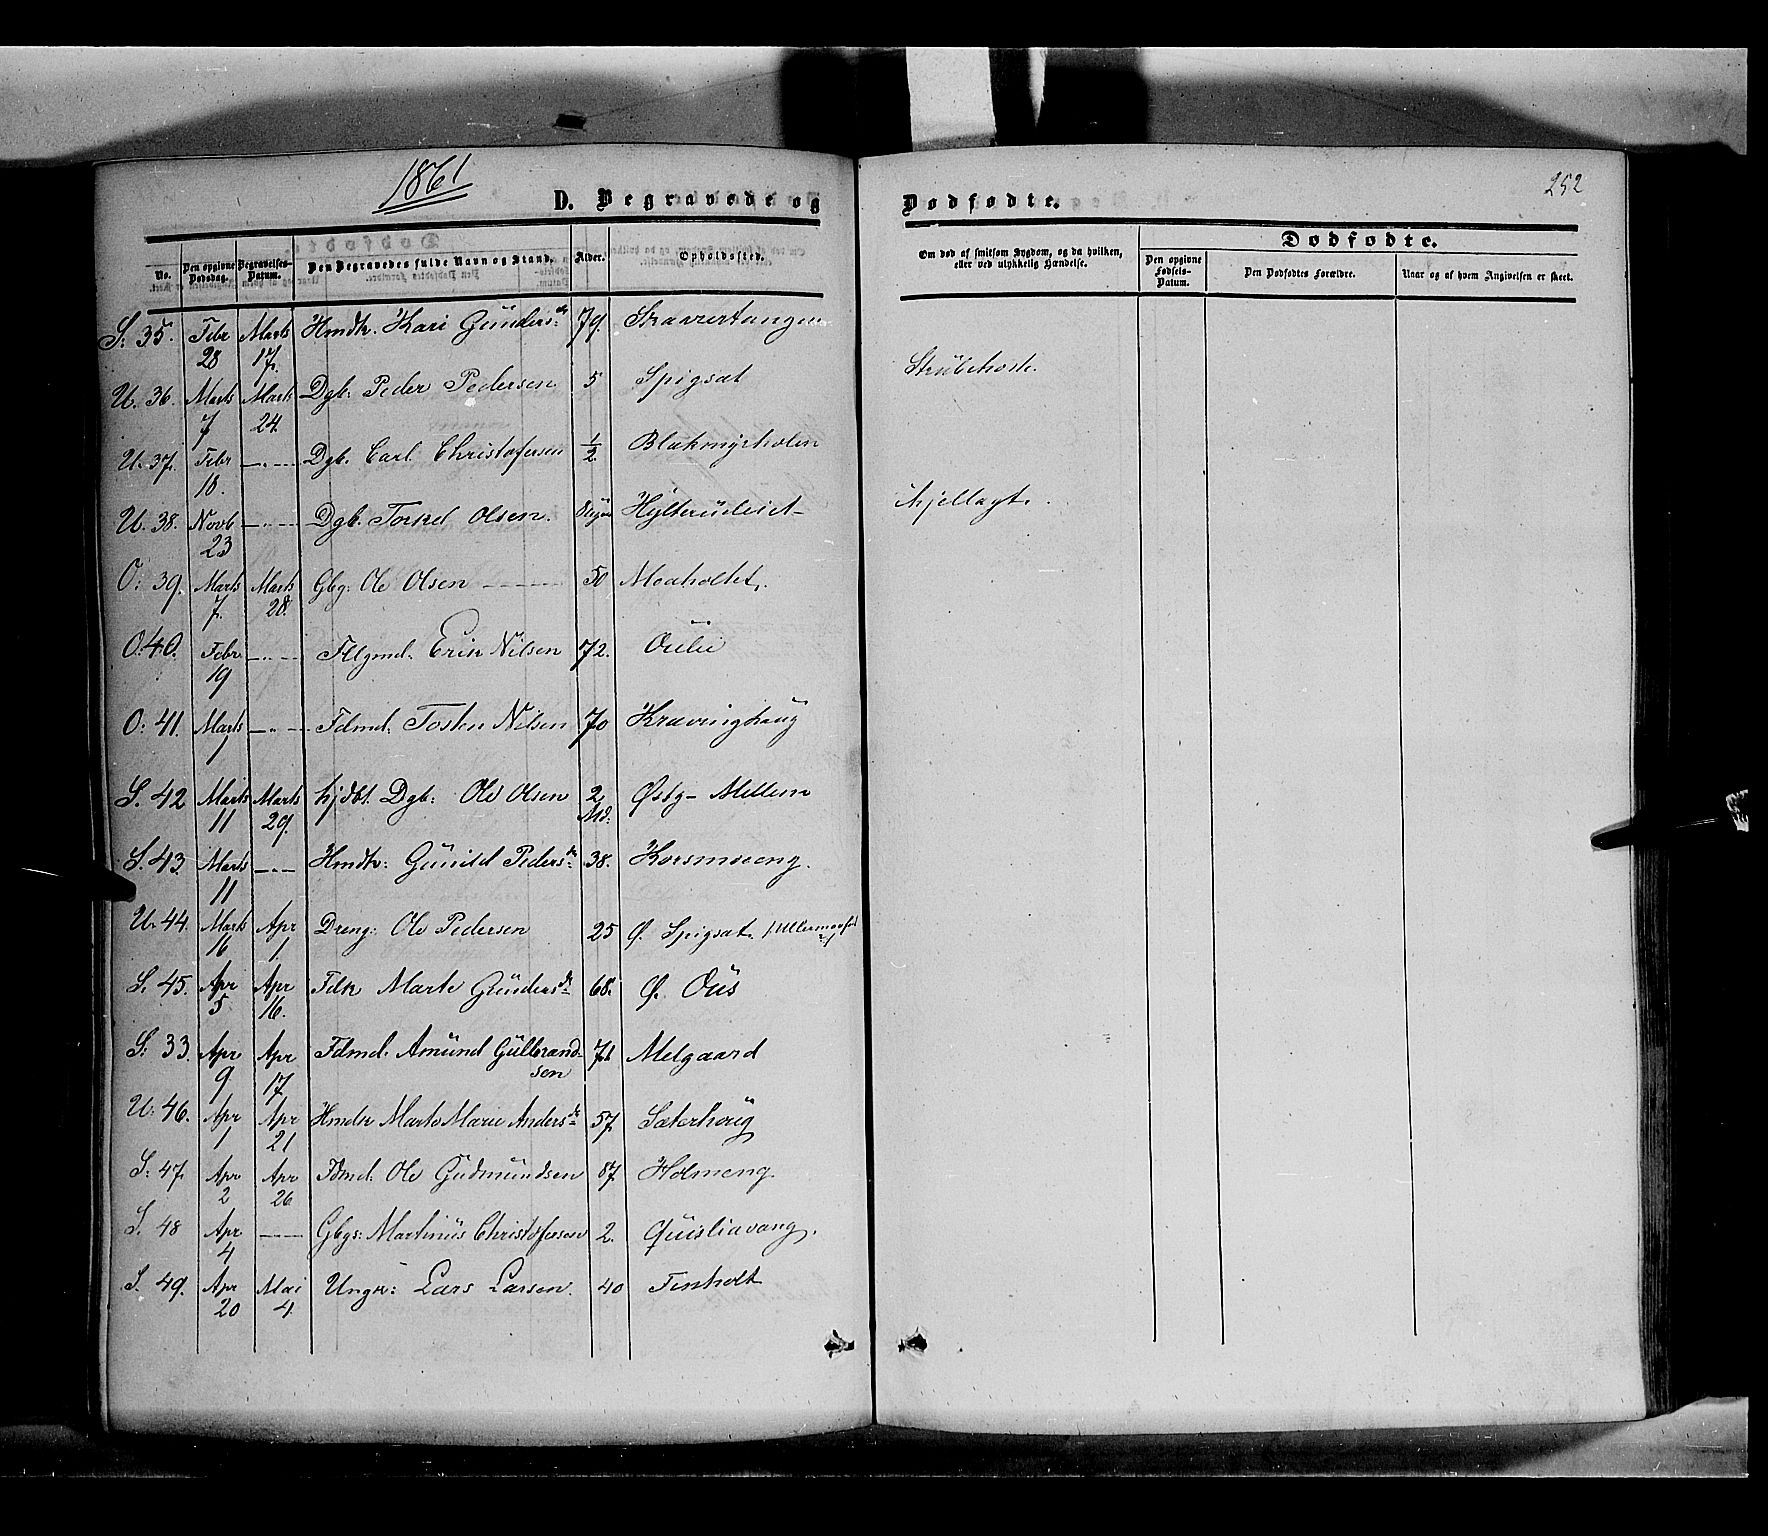 1861
252
D. Begravede og Dødfødte.
No. Den opgivne Dødsdag. Begravelses-Datum. Den Begravedes fulde Navn og Stand. Alder. Opholdssted. Om død af smitsom Sygdom, og da hvilken, eller ved ulykkelig Hændelse. Dødfødte. Den opgivne Fødsels-Datum. Den Dødfødtes Forældre. Naar og af hvem Angivelsen er skeet.
S: 35. Febr 28 Marts 17. Hmdk. Kari Gunders dr 79.
U. 36. Marts 7 Marts 24. Dgb: Peder Pedersen 5 Spigsat Strubehoste.
U. 37. Febr 18. —„— Dgb. Carl Christofersen 1/2 Blakmyrholen
U. 38. Novb 23 —„— Dgb. Torkel Olsen.
O: 39. Marts 7. Marts 28. Gbg: Ole Olsen — 50 Moaholtet.
O: 40. Febr 19 —„— Erik Nilsen 72. Oulie
O: 41. Marts 1 —„— Fdmd: Tosten Nilsen 70 Kravinghaug
S. 42 Marts 11 Marts 29. hjdbt. Dgb: Ole Olsen 2 Md: Østg-Mellem
S. 43. Marts 11 —„— Hmdk: Gunild Peders dr 38. Korsmoeng.
U. 44. Marts 16 Apr 1. Dreng: Ole Pedersen 25 Ø. Spigsat.
S. 45. Apr 5. Apr 16. Fdk Marte Gunders dr 68. Ø. Ous
S: 33. Apr 9 Apr 17 Fdmd: Amund Gulbrandsen Melgaard
U: 46. Apr 1 Apr 21 Hmdk Marte Marie Anders dr 57. Sæterhoug
S: 47. Apr 2 Apr 26 Fdmd: Ole Gudmundsen 87. Holmeng.
S. 48 Apr 4 —„— Gbgs: Martinus Christofersen 2. Quisliavang.
S. 49. Apr 20 Mai 4. Ungk: Lars Larsen. 40 Finholt